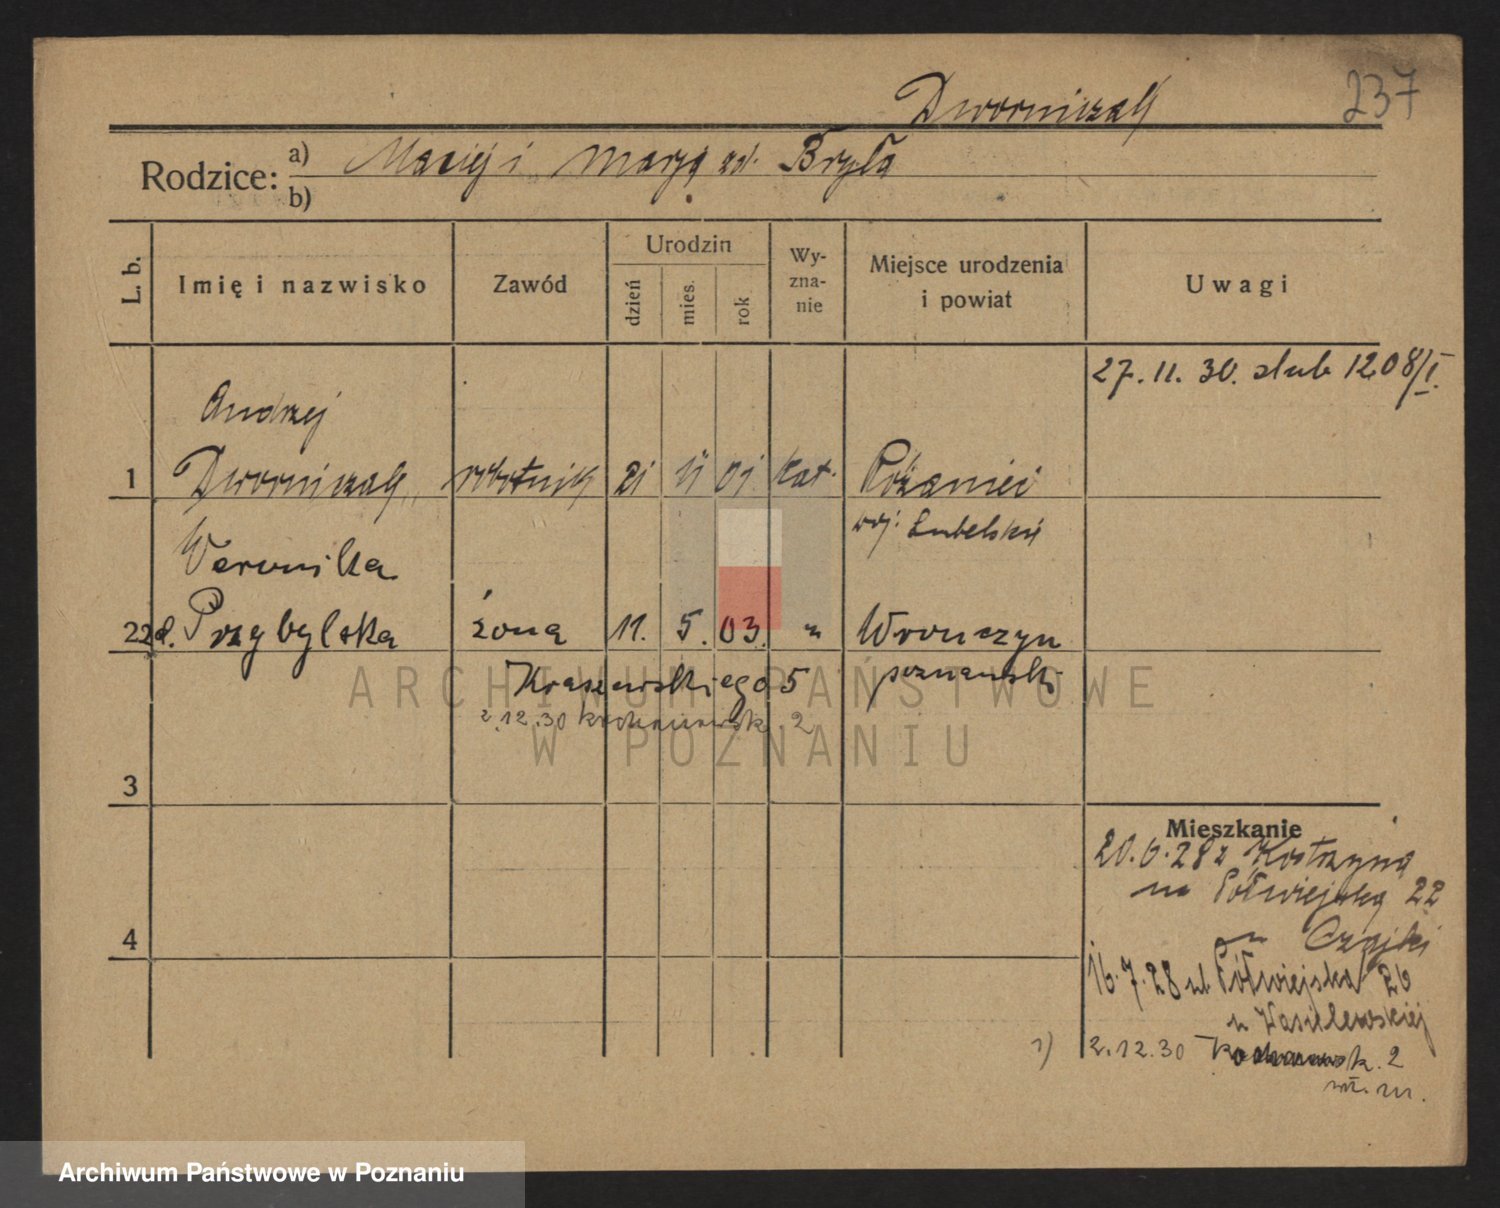 Dworniczak
237
Rodzice: a) Maciej i Marya zd. Bryła
b)
L. b.
Imię i nazwisko
Zawód
Urodzin
dzień
mies.
rok
Wy-
zna-
nie
Miejsce urodzenia
i powiat
Uwagi
27.11.30. slub 1208/I.
Andrzej
1 Dworniczak robotnik 21 11 01 kat. Różaniec
woj. Lubelskie
Weronika
2 Przybylska żona 11. 5. 03. " Wronczyn
Kraszewskiego 5 poznański
2.12.30 Kochanowsk. 2
3
Mieszkanie
20.6.28 z Kostrzyna
na Półwiejską 22
4
u Czajki
16.7.28 ul. Półwiejska 26
u Wasielewskiej
1) 2.12.30 Kochanowsk. 2
ARCHIWUM PAŃSTWOWE
W POZNANIU
Archiwum Państwowe w Poznaniu